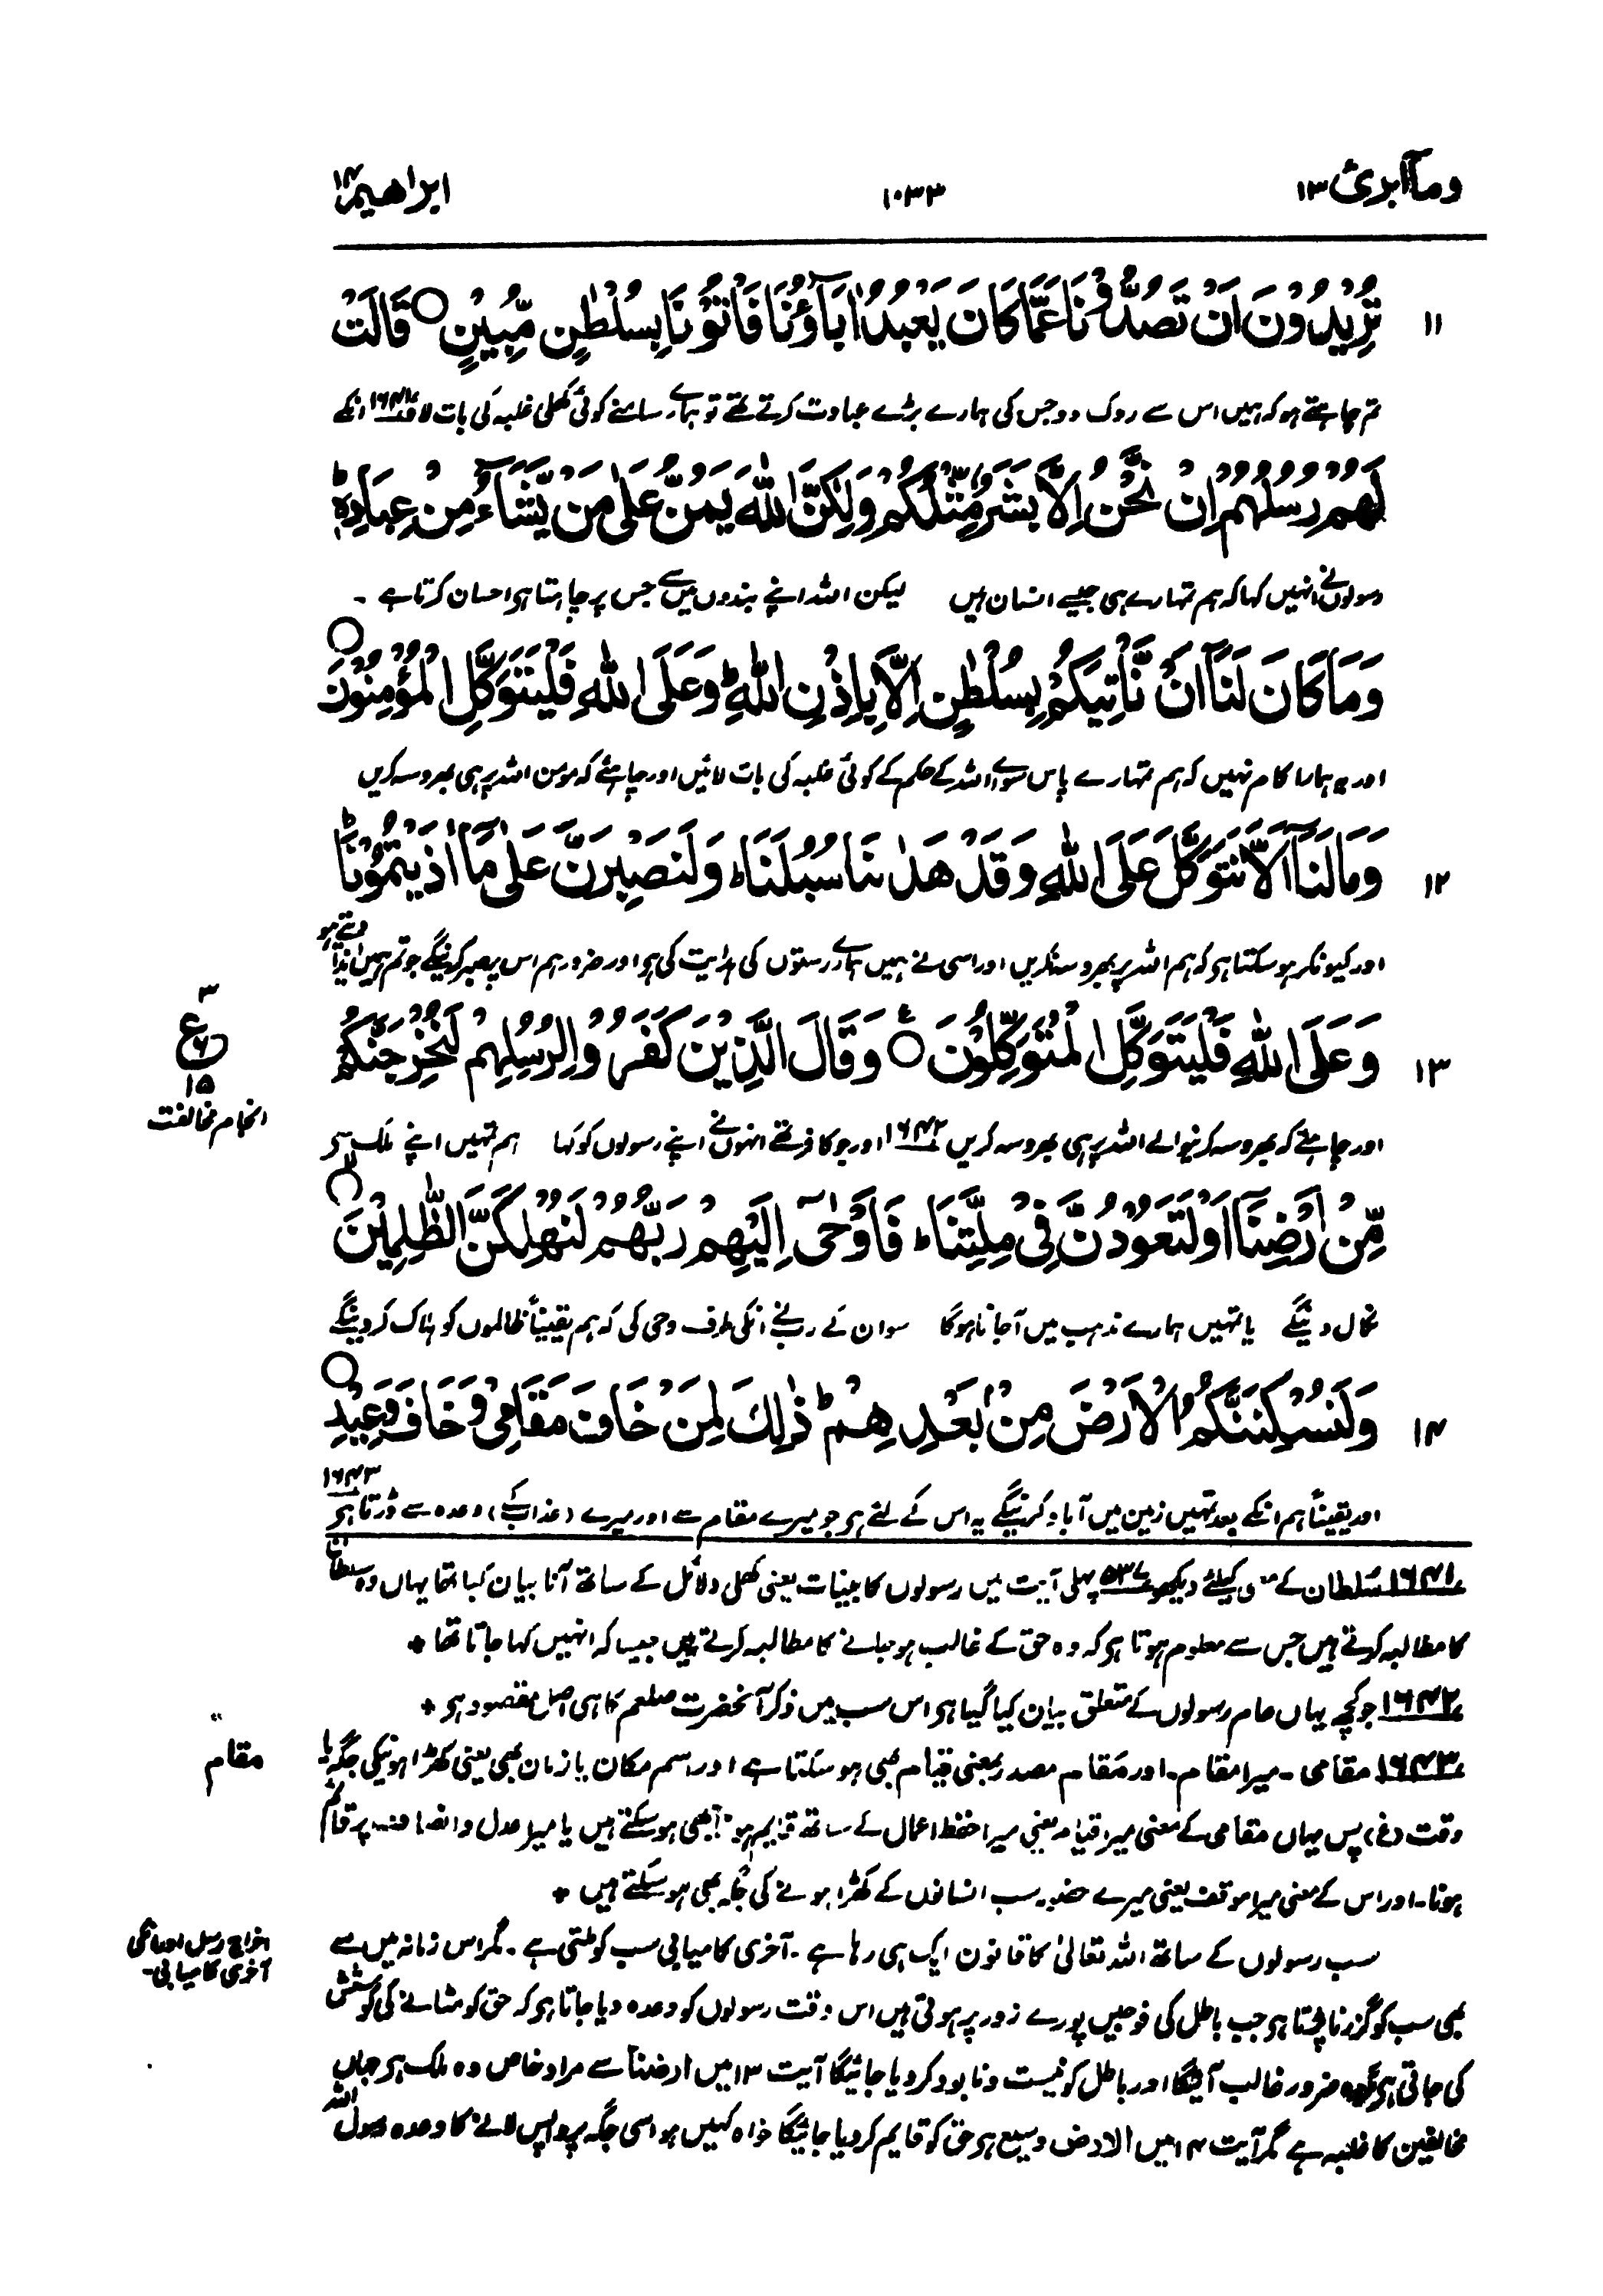 ومآ ابرئ ۱۳
۱۰۳۳
ابراھیم ۱۴
۱۱
تُرِیْدُوْنَ اَنْ تَصُدُّوْنَا عَمَّا کَانَ یَعْبُدُ اٰبَآؤُنَا فَاْتُوْنَا بِسُلْطٰنٍ مُّبِیْنٍ ○ قَالَتْ
تم چاہتے ہو کہ ہمیں اس سے روک دو جس کی ہمارے بڑے عبادت کرتے تھے تو ہمارے سامنے کوئی کھلی غلبہ کی بات لاؤ ۱۶۴۱ انکے
لَهُمْ رُسُلُهُمْ اِنْ نَّحْنُ اِلَّا بَشَرٌ مِّثْلُکُمْ وَلٰکِنَّ اللّٰهَ یَمُنُّ عَلٰی مَنْ یَّشَآءُ مِنْ عِبَادِهٖ ؕ
رسولوں نے انہیں کہا کہ ہم تمہارے ہی جیسے انسان ہیں لیکن اللہ اپنے بندوں میں سے جس پر چاہتا ہی احسان کرتا ہے ۔
وَمَا کَانَ لَنَآ اَنْ نَّاْتِیَکُمْ بِسُلْطٰنٍ اِلَّا بِاِذْنِ اللّٰهِ ؕ وَعَلَی اللّٰهِ فَلْیَتَوَکَّلِ الْمُؤْمِنُوْنَ ○
اور یہ ہمارا کام نہیں کہ ہم تمہارے پاس سوائے اللہ کے حکم کے کوئی غلبہ کی بات لائیں اور چاہئے کہ مومن اللہ پر ہی بھروسہ کریں
۱۲
وَمَا لَنَآ اَلَّا نَتَوَکَّلَ عَلَی اللّٰهِ وَقَدْ هَدٰىنَا سُبُلَنَا ؕ وَلَنَصْبِرَنَّ عَلٰی مَآ اٰذَیْتُمُوْنَا ؕ
اور کیونکر ہو سکتا ہی کہ ہم اللہ پر بھروسہ نکریں اور اسی نے ہمیں ہمارے رستوں کی ہدایت کی ہی اور ضرور ہم اس پر صبر کرینگے جو تم ہمیں ایذا دیتے ہو
۳
ع
۶
۱۵
انجام مخالفت
۱۳
وَعَلَی اللّٰهِ فَلْیَتَوَکَّلِ الْمُتَوَکِّلُوْنَ ○ع وَقَالَ الَّذِیْنَ کَفَرُوْا لِرُسُلِهِمْ لَنُخْرِجَنَّکُمْ
اور چاہئے کہ بھروسہ کرنیوالے اللہ پر ہی بھروسہ کریں ۱۶۴۲ اور جو کافر تھے انہوں نے اپنے رسولوں کو کہا ہم تمہیں اپنے ملک سے
مِّنْ اَرْضِنَآ اَوْ لَتَعُوْدُنَّ فِیْ مِلَّتِنَا ؕ فَاَوْحٰۤی اِلَیْهِمْ رَبُّهُمْ لَنُهْلِکَنَّ الظّٰلِمِیْنَ لا○
نکال دینگے یا تمہیں ہمارے مذہب میں آجانا ہوگا سو ان کے رب نے انکی طرف وحی کی کہ ہم یقیناً ظالموں کو ہلاک کردینگے
۱۴
وَلَنُسْکِنَنَّکُمُ الْاَرْضَ مِنْۢ بَعْدِهِمْ ؕ ذٰلِکَ لِمَنْ خَافَ مَقَامِیْ وَخَافَ وَعِیْدِ ○
اور یقیناً ہم انکے بعد تمہیں زمین میں آباد کرینگے یہ اس کے لئے ہی جو میرے مقام سے اور میرے (عذاب کے) وعدہ سے ڈرتا ہی ۱۶۴۳
۱۶۴۱ سلطان کے معنی کیلئے دیکھو ۵۳۷ پہلی آیت میں رسولوں کا بینات یعنی کھلی دلائل کے ساتھ آنا بیان کیا تھا یہاں وہ سلطان
کا مطالبہ کرتے ہیں جس سے معلوم ہوتا ہی کہ وہ حق کے غالب ہو جانے کا مطالبہ کرتے ہیں جیسا کہ انہیں کہا جاتا تھا +
۱۶۴۲ جو کچھ یہاں عام رسولوں کے متعلق بیان کیا گیا ہی اس سب میں ذکر آنحضرت صلعم کا ہی اصل مقصود ہی +
مقام
۱۶۴۳ مقامی ۔ میرا مقام ۔ اور مَقام مصدر بمعنی قیام بھی ہو سکتا ہے اور اسم مکان یا زمان بھی یعنی کھڑا ہونیکی جگہ یا
وقت (غ) پس یہاں مقامی کے معنی میرا قیام یعنی میرا حفظ اعمال کے ساتھ قایم ہونا بھی ہو سکتے ہیں یا میرا عدل و انصاف پر قائم
ہونا ۔ اور اس کے معنی میرا موقف یعنی میرے حضور سب انسانوں کے کھڑا ہونے کی جگہ بھی ہو سکتے ہیں +
اخراج رسل اور انکی
آخری کامیابی ۔
سب رسولوں کے ساتھ اللہ تعالیٰ کا قانون ایک ہی رہا ہے ۔ آخری کامیابی سب کو ملتی ہے ۔ مگر اس زمانہ میں سے
بھی سب کو گزرنا پڑتا ہی جب باطل کی فوجیں پورے زور پر ہوتی ہیں اس وقت رسولوں کو وعدہ دیا جاتا ہی کہ حق کو مٹانے کی کوشش
کی جاتی ہی مگر وہ ضرور غالب آئیگا اور باطل کو نیست و نابود کردیا جائیگا آیت ۱۳ میں ارضنا سے مراد خاص وہ ملک ہی جہاں
مخالفین کا غلبہ ہے مگر آیت ۱۴ میں الارض وسیع ہی حق کو قایم کردیا جائیگا خواہ کہیں ہو اسی جگہ پر واپس لانے کا وعدہ رسول اللہ